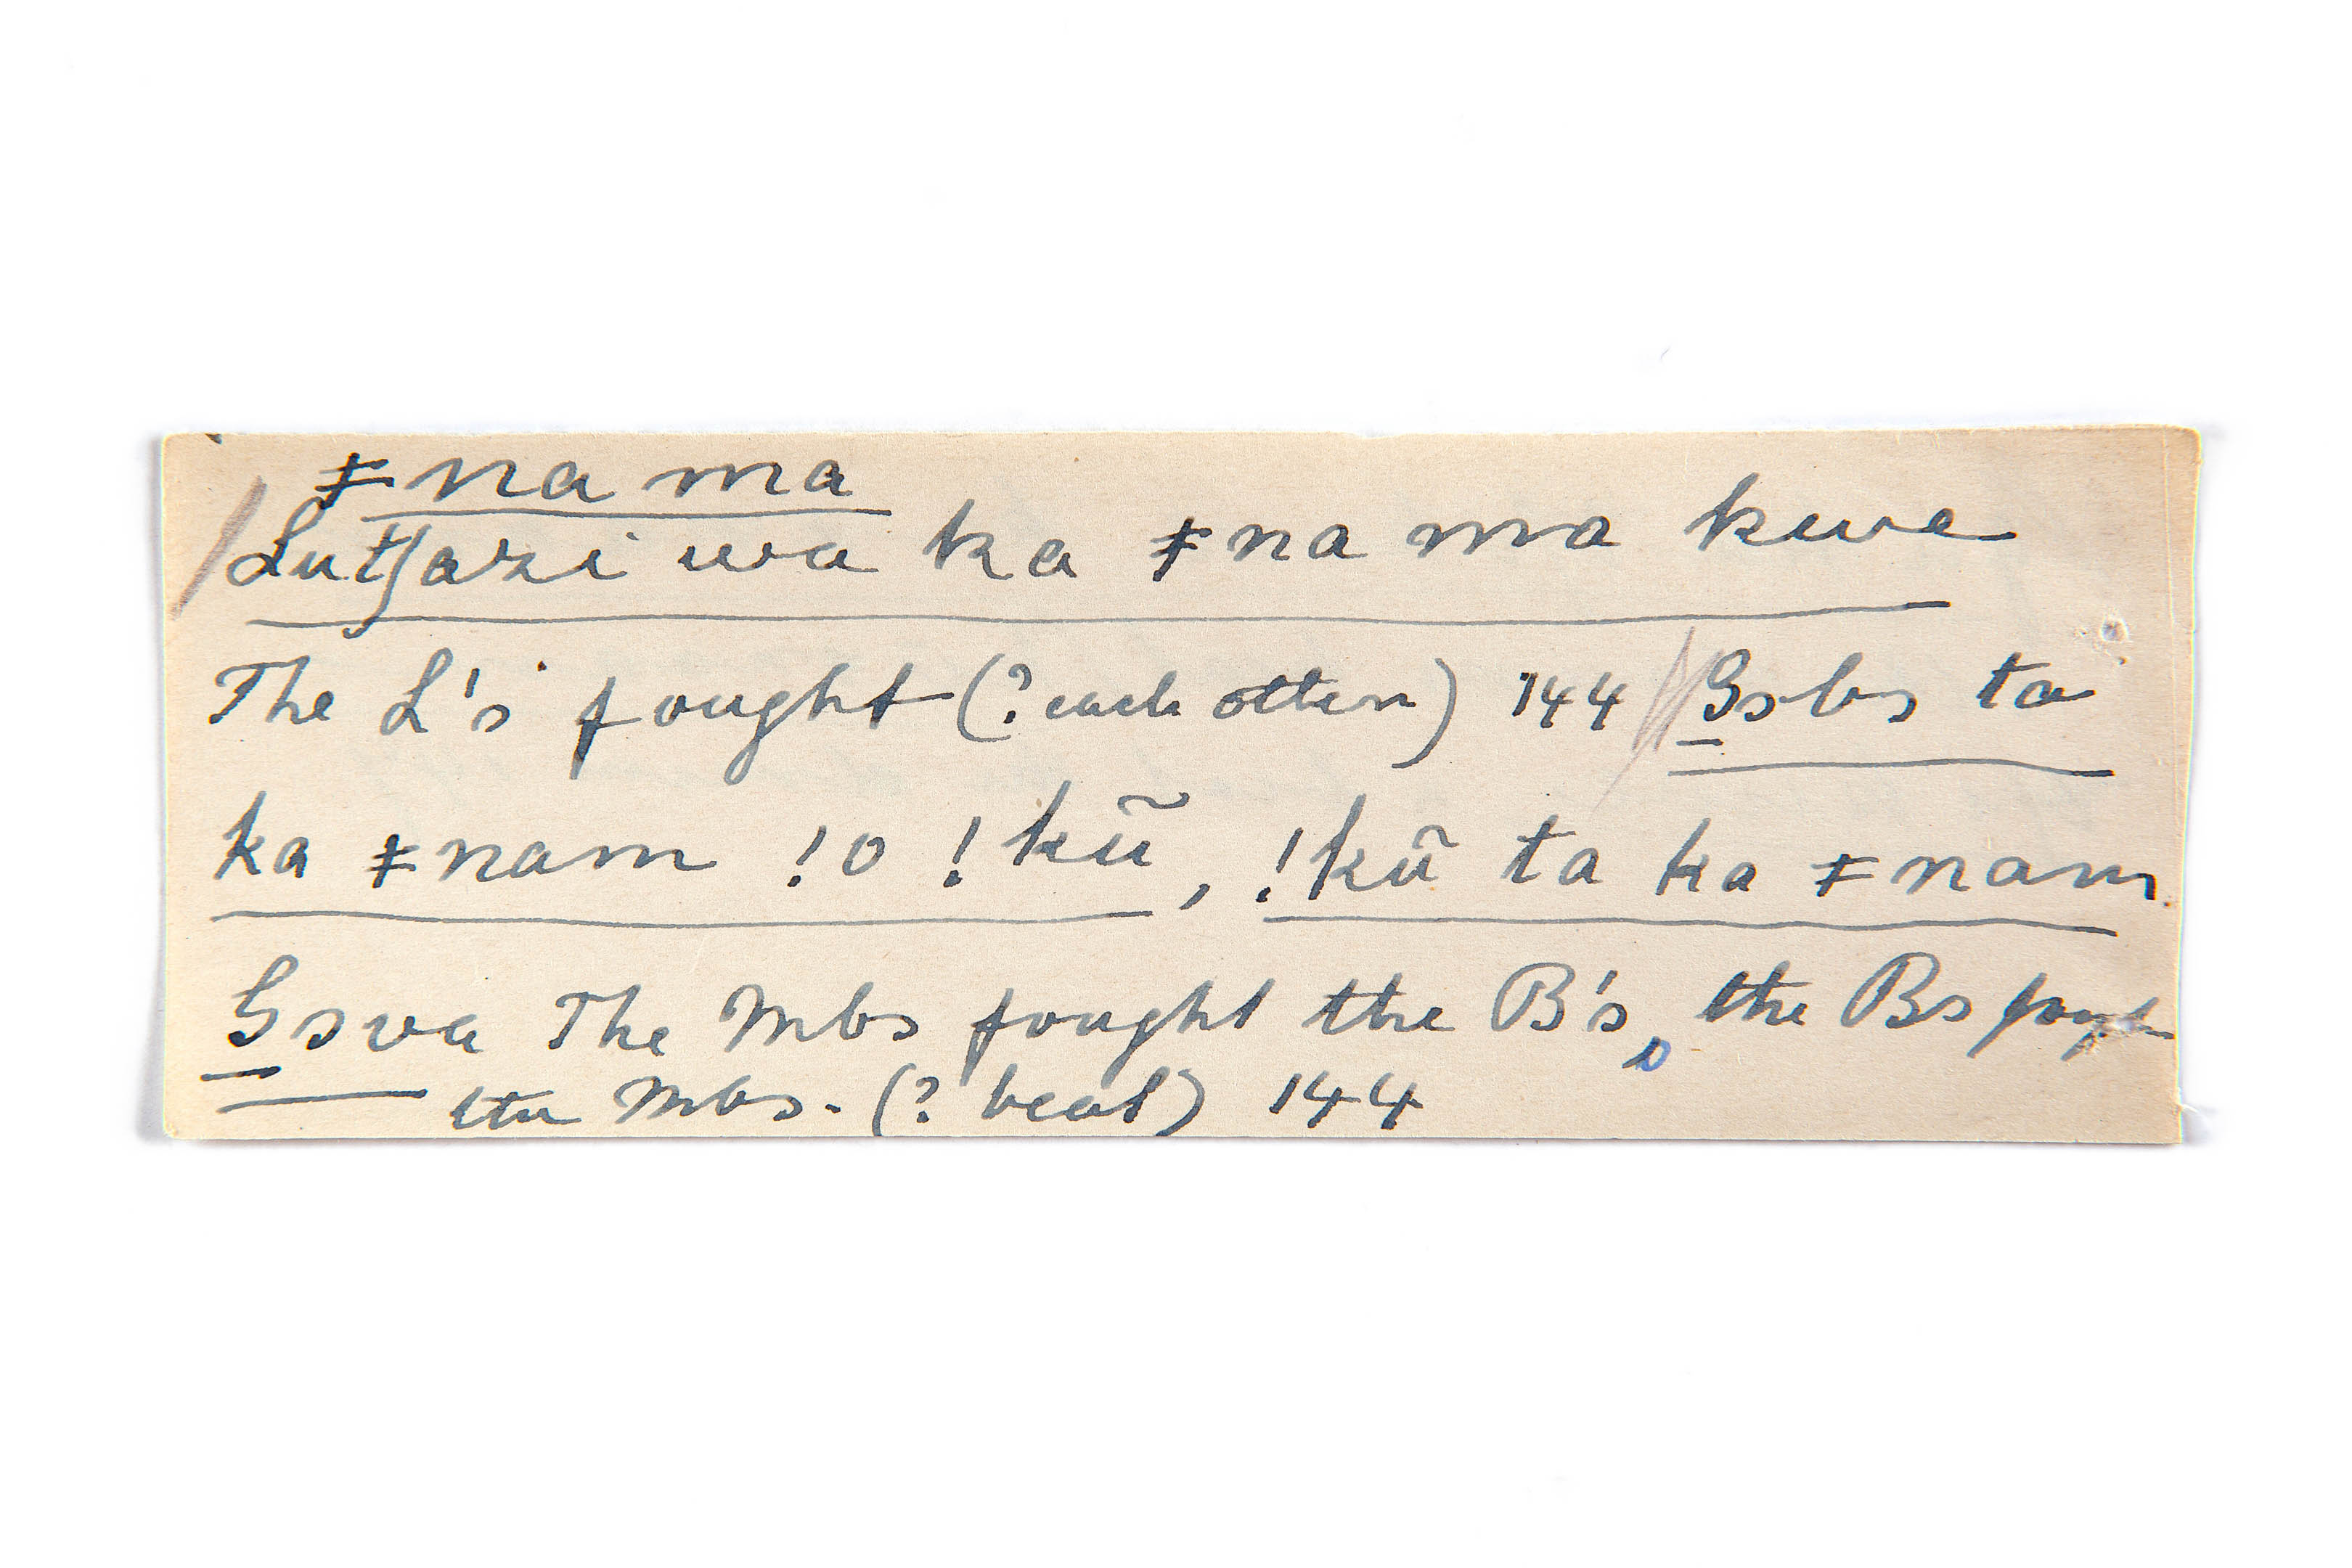 ǂna ma
Lutʃazi wa ka ǂna ma kwe
The L's fought (? each other) 144 // Gsbs ta
ka ǂnam !o !kũ, !kũ ta ka ǂnam
Gsva The Mbs fought the B's, the Bs fought
the Mbs. (? beat) 144